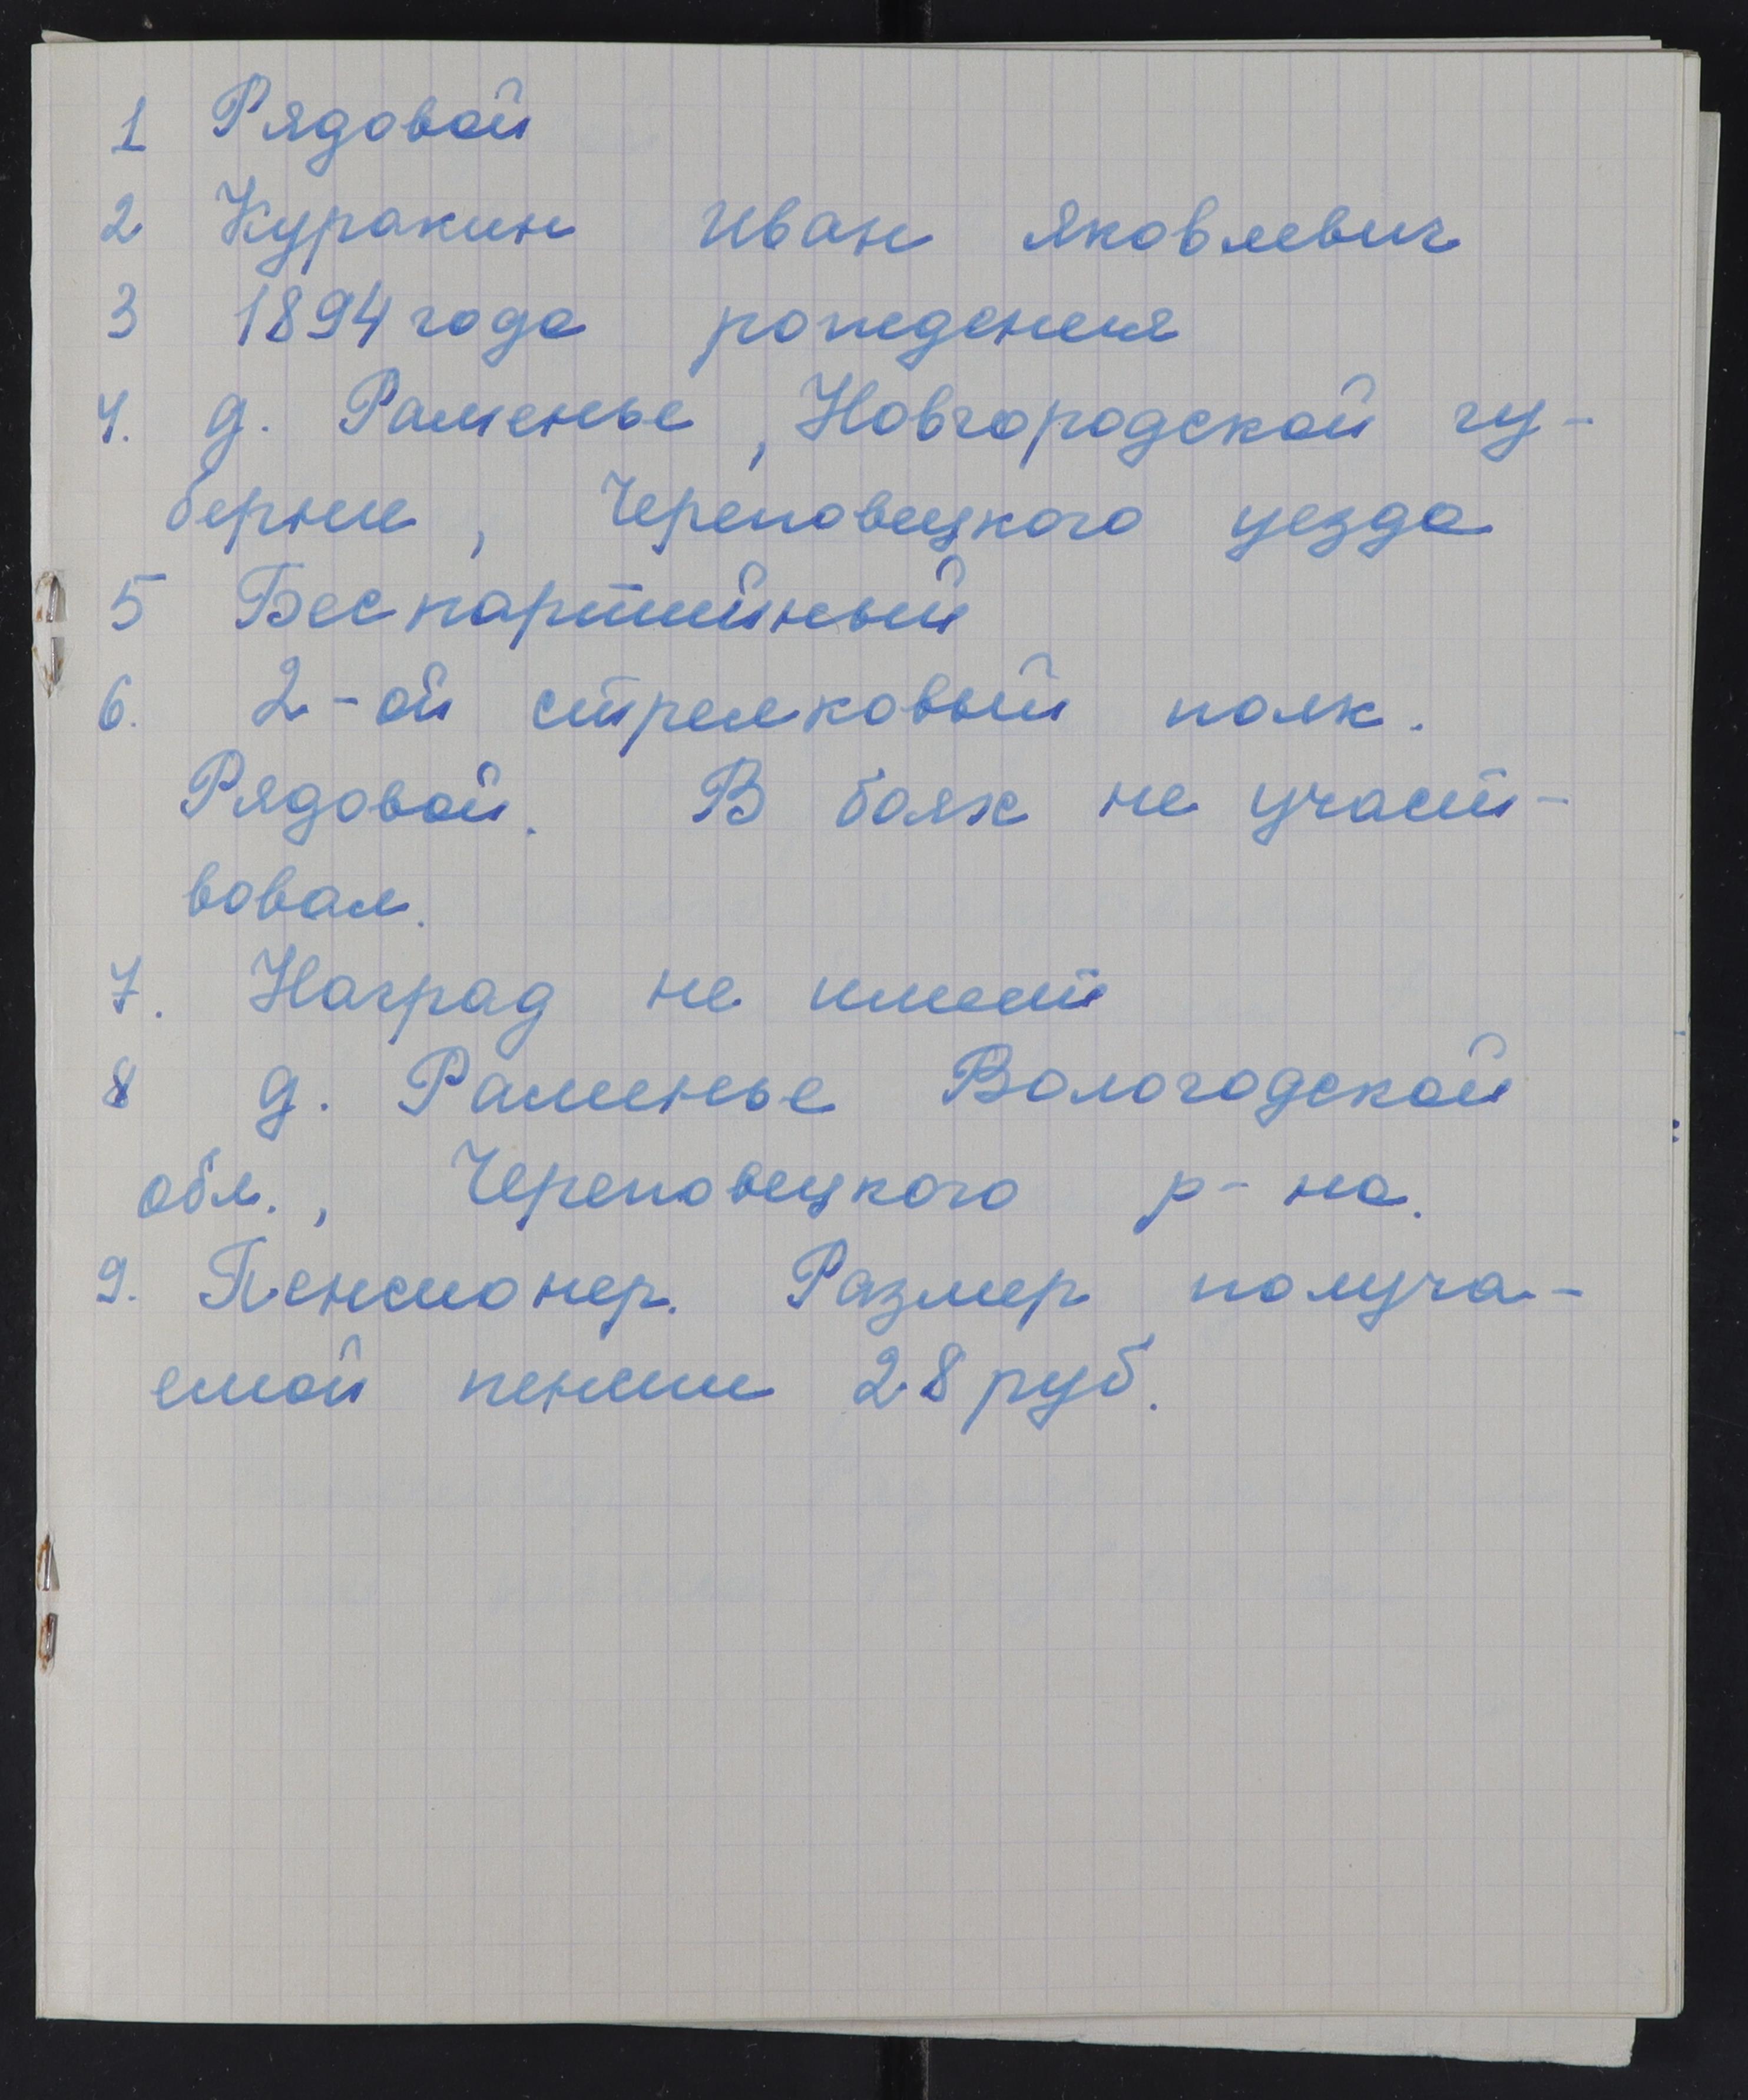 1 Рядовой
2 Куракин Иван Яковлевич
3 1894 года рождения
4. д. Раменье, Новгородской гу-
бернии, Череповецкого уезда
5 Беспартийный
6. 2-ой стрелковый полк.
Рядовой. В боях не участ-
вовал.
7. Наград не имеет
8 д. Раменье Вологодской
обл., Череповецкого р-на.
9. Пенсионер. Размер получа-
емой пенсии 28 руб.